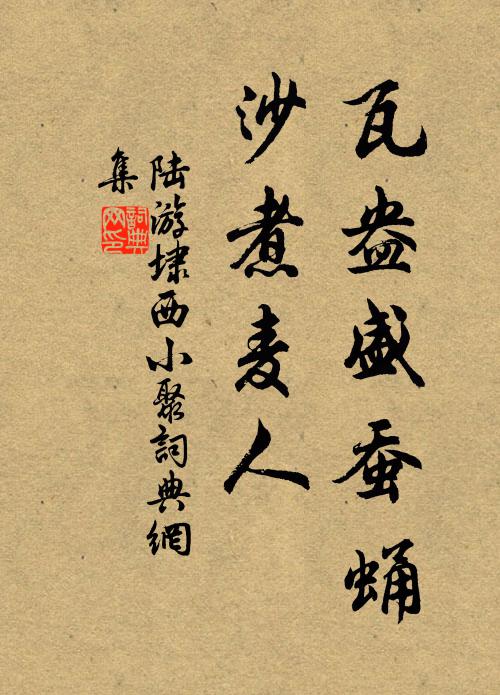 瓦盎盛蚕蛹
沙煮麦人
陆游埭西小聚詞典網
集
詞典
网印